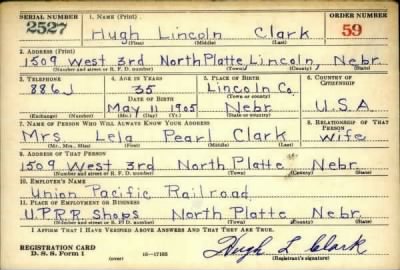 SERIAL NUMBER 1. NAME (Print) ORDER NUMBER
2527 Hugh Lincoln Clark 59
(First) (Middle) (Last)
2. ADDRESS (Print)
1509 West 3rd North Platte Lincoln, Nebr.
(Number and street or R. F. D. number) (Town) (County) (State)
3. TELEPHONE 4. AGE IN YEARS 5. PLACE OF BIRTH 6. COUNTRY OF CITIZENSHIP
886J 35 Lincoln Co.
DATE OF BIRTH (Town or county)
May 11 1905 Nebr U.S.A
(Exchange) (Number) (Mo.) (Day) (Yr.) (State or country)
7. NAME OF PERSON WHO WILL ALWAYS KNOW YOUR ADDRESS 8. RELATIONSHIP OF THAT PERSON
Mrs. Lela Pearl Clark wife
(Mr., Mrs., Miss) (First) (Middle) (Last)
9. ADDRESS OF THAT PERSON
1509 West 3rd North Platte Nebr.
(Number and street or R. F. D. number) (Town) (County) (State)
10. EMPLOYER'S NAME
Union Pacific Railroad
11. PLACE OF EMPLOYMENT OR BUSINESS
U.P.R.R Shops North Platte Nebr.
(Number and street or R. F. D. number) (Town) (County) (State)
I AFFIRM THAT I HAVE VERIFIED ABOVE ANSWERS AND THAT THEY ARE TRUE.
REGISTRATION CARD
D. S. S. Form 1 (over) 16—17105 Hugh L Clark
(Registrant's signature)